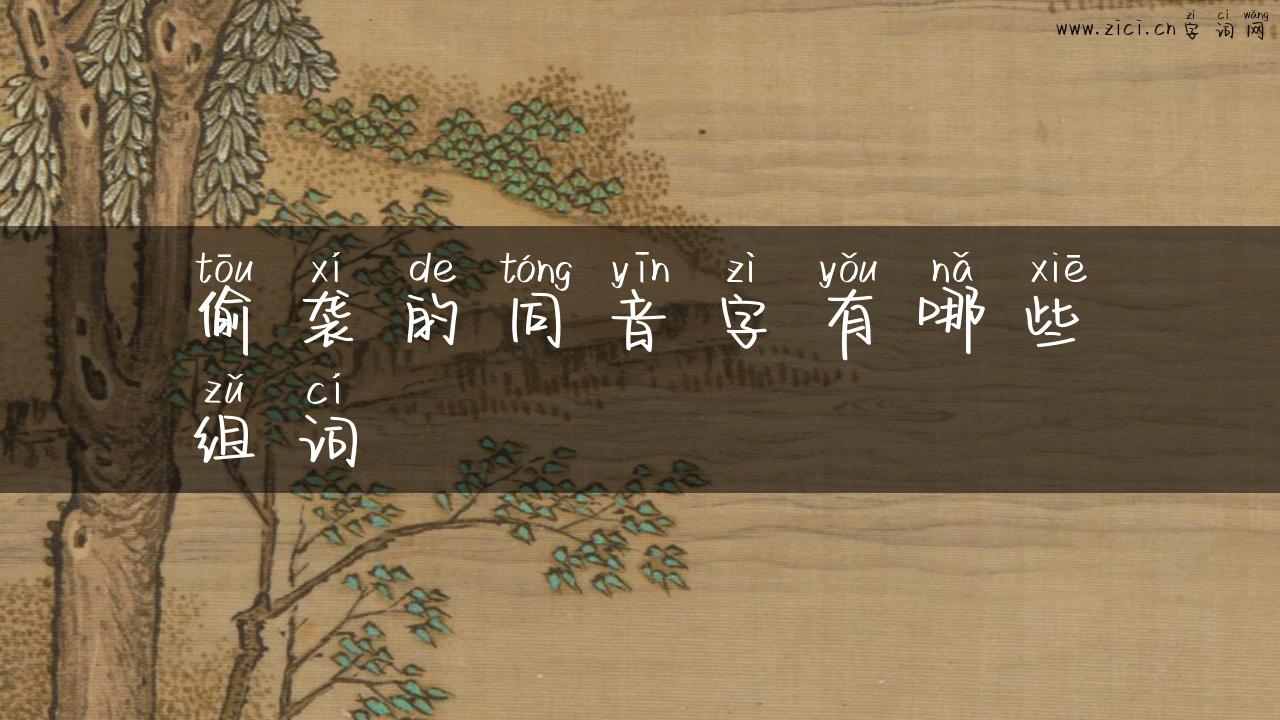 zì cí wǎng
www.zici.cn字词网
tōu xí de tóng yīn zì yǒu nǎ xiē
偷袭的同音字有哪些
zǔ cí
组词